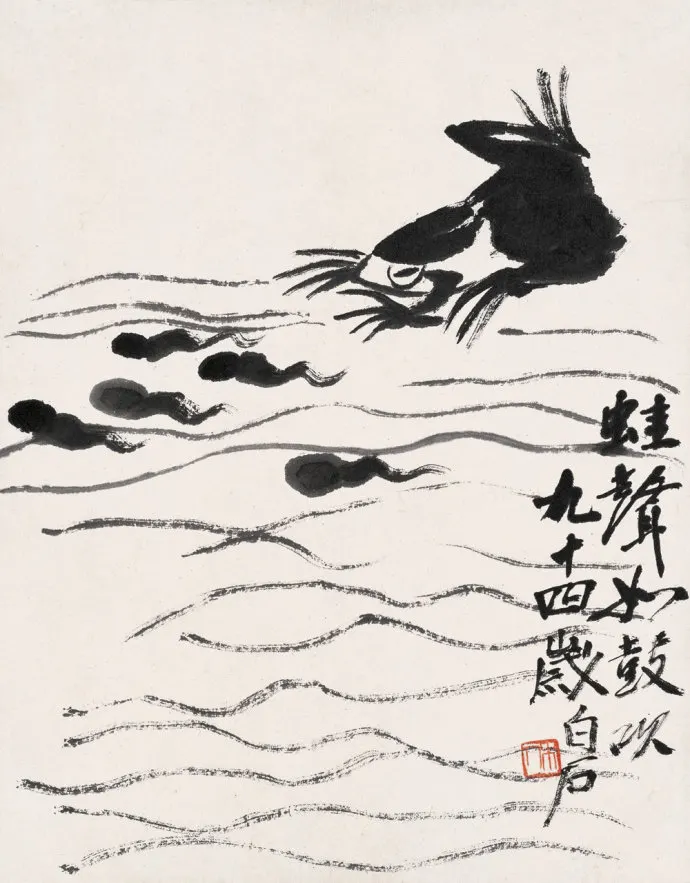 蛙聲如鼓吹
九十四歲白石